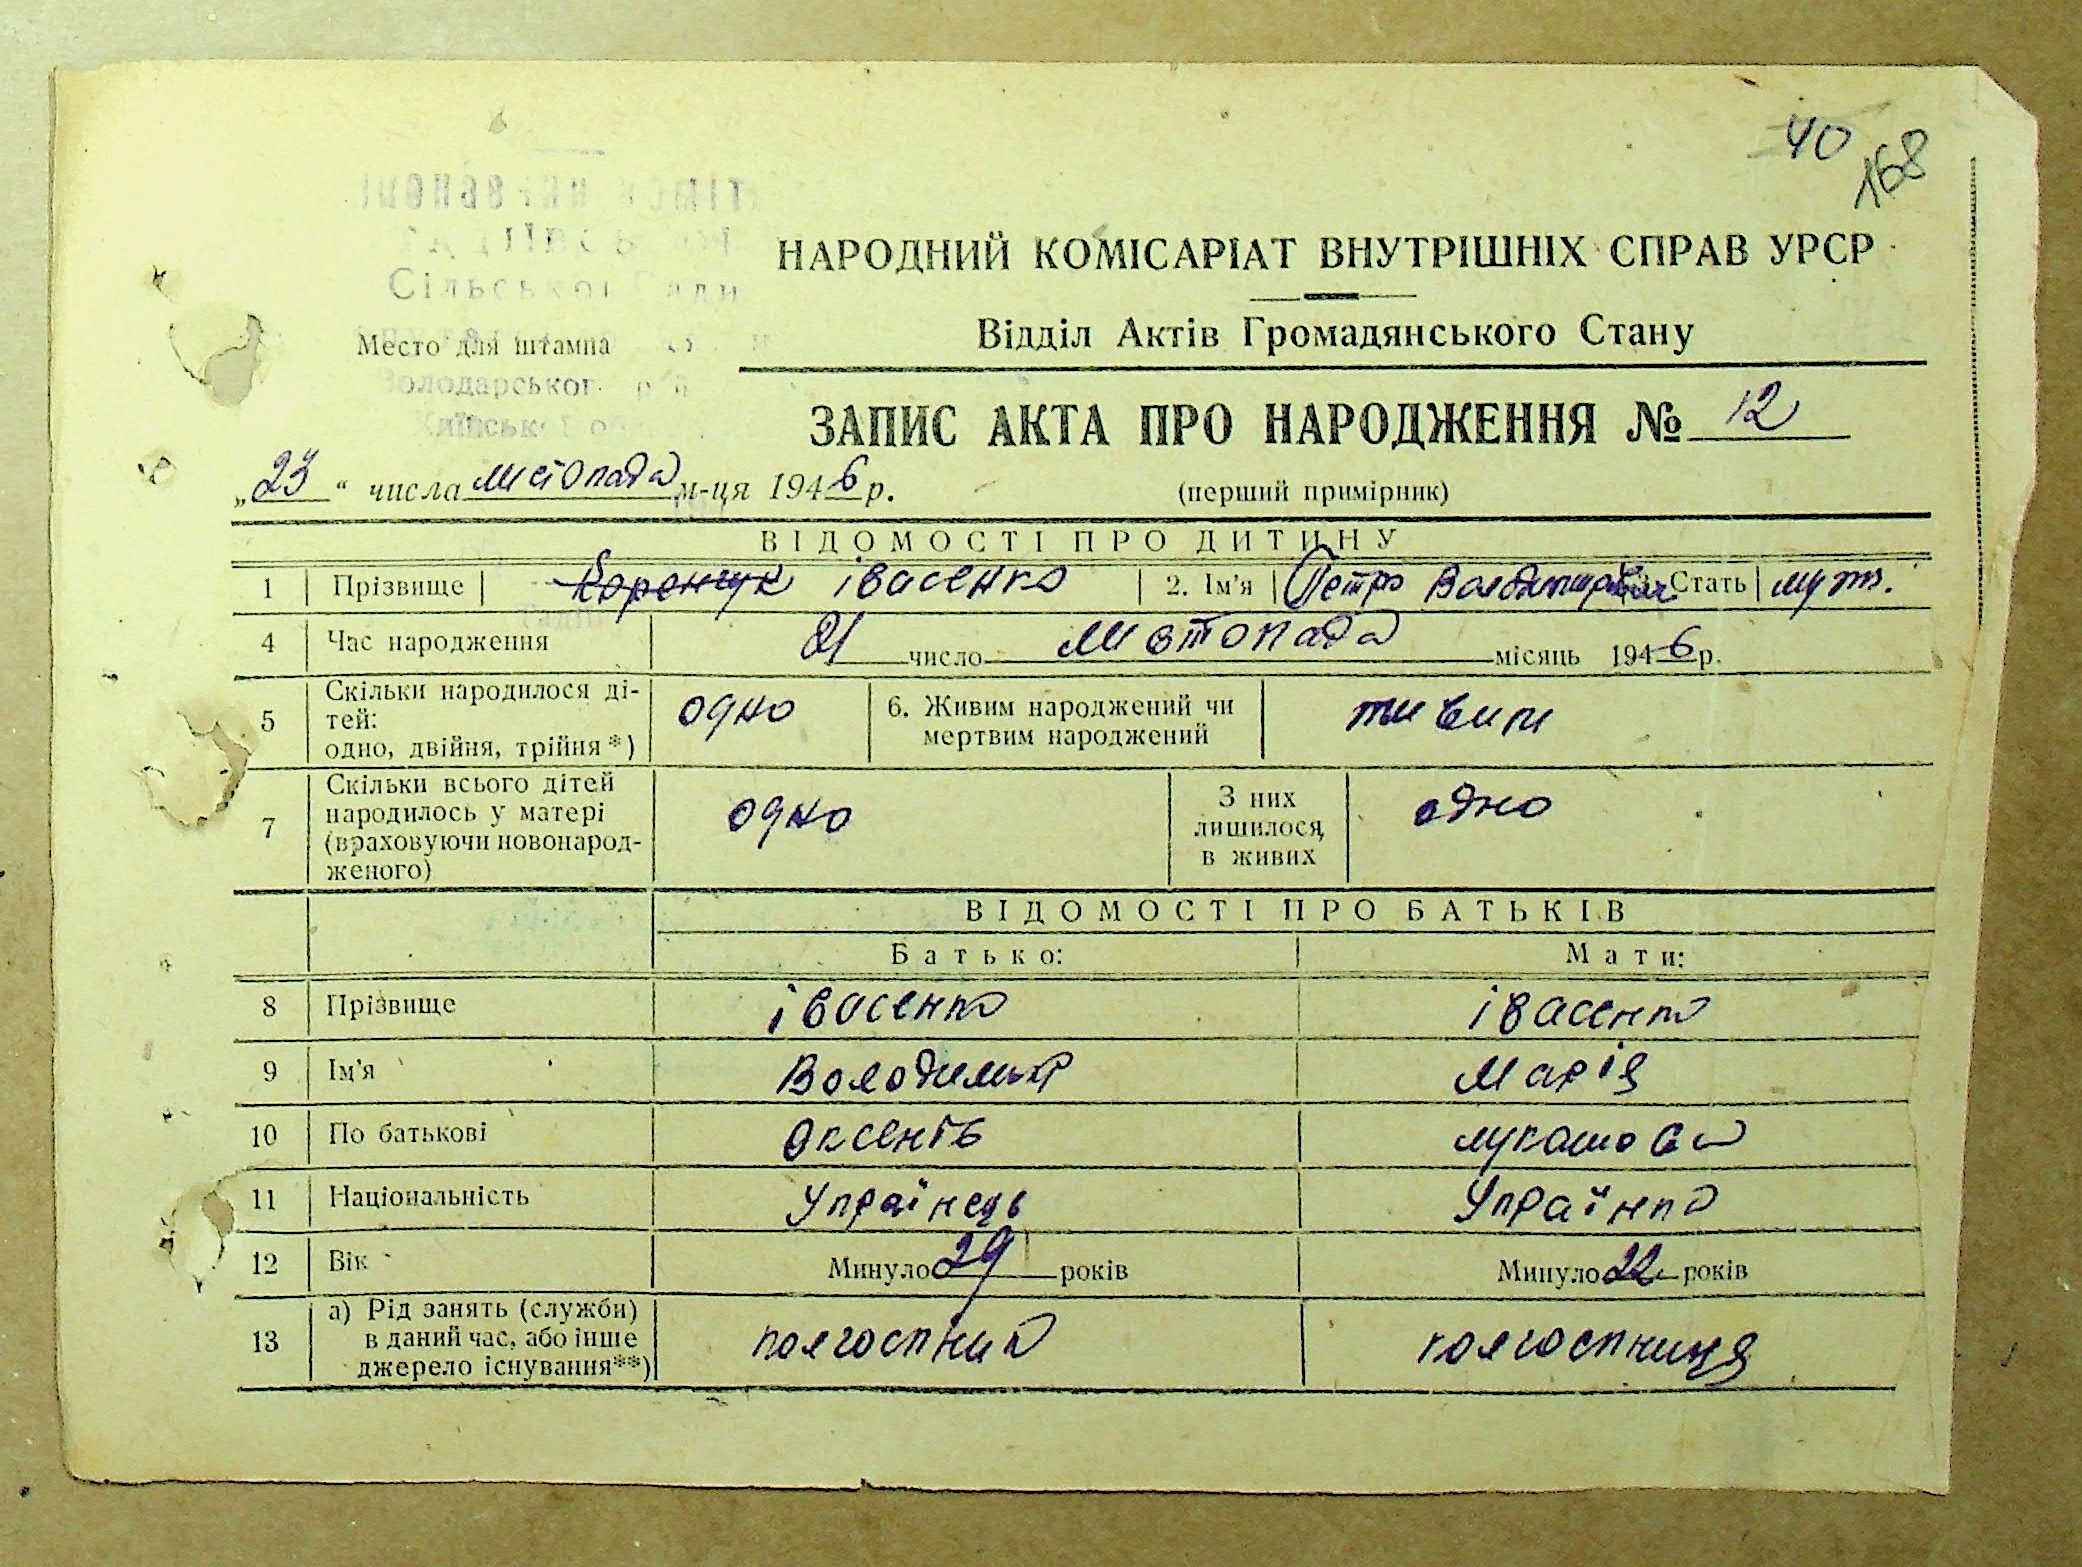 40
168
Сільської Ради
НАРОДНИЙ КОМІСАРІАТ ВНУТРІШНІХ СПРАВ УРСР
Місто для штампа
Відділ Актів Громадянського Стану
Володарського
Київської
ЗАПИС АКТА ПРО НАРОДЖЕННЯ № 12
„23" числа листопада м-ця 1946 р.
(перший примірник)
ВІДОМОСТІ ПРО ДИТИНУ
1 Прізвище івасенко 2. Ім'я Петро Володимирович 3. Стать муж.
4 Час народження 21 число листопада місяць 1946 р.
5 Скільки народилося ді-
тей:
одно, двійня, трійня*) одно
6. Живим народжений чи
мертвим народжений живим
7 Скільки всього дітей
народилось у матері
(враховуючи новонарод-
женого) одно
З них
лишилося
в живих одно
ВІДОМОСТІ ПРО БАТЬКІВ
Батько: Мати:
8 Прізвище івасенко івасенко
9 Ім'я Володимир Марія
10 По батькові Оксентів лукашова
11 Національність Українець Українка
12 Вік Минуло 29 років Минуло 22 років
13 а) Рід занять (служби)
в даний час, або інше
джерело існування**) колгоспник колгоспниця